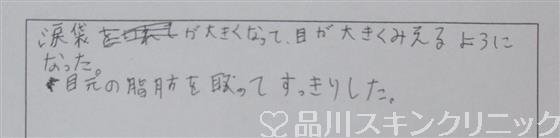 涙袋が大きくなって、目が大きくみえるように
なった。
目元の脂肪を取ってすっきりした。
品川スキンクリニック